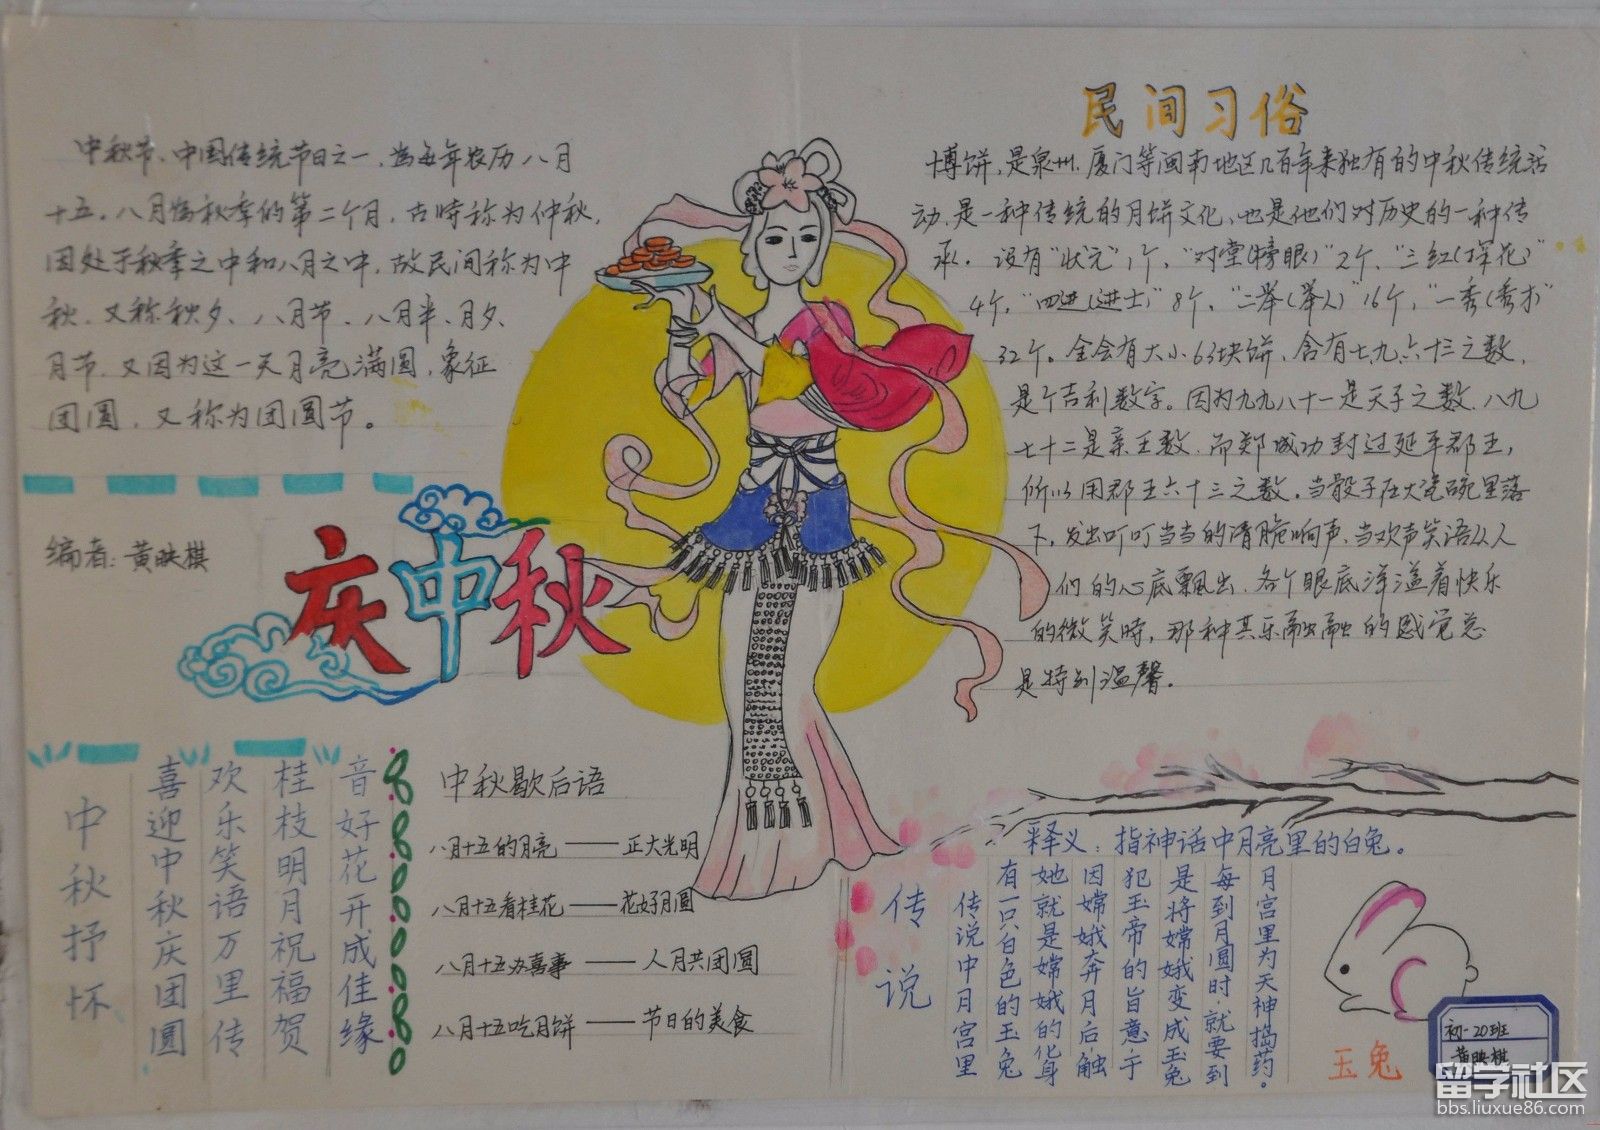 中秋节、中国传统节日之一，为每年农历八月
十五。八月为秋季的第二个月，古時称为仲秋，
因处于秋季之中和八月之中，故民间称为中
秋，又称秋夕、八月节、八月半、月夕、
月节，又因为这一天月亮满圆，象征
团圆，又称为团圆节。
编者：黄映棋
庆中秋
民间习俗
博饼，是泉州、厦门等闽南地区几百年来独有的中秋传统活
动，是一种传统的月饼文化、也是他们对历史的一种传
承。设有“状元”1个，“对堂(榜眼)”2个，“三红(探花)”
4个，“四进(进士)”8个，“二举(举人)”16个，“一秀(秀才)”
32个。全会有大小63块饼，含有七九六十三之数，
是个吉利数字。因为九九八十一是天子之数，八九
七十二是亲王数，而郑成功封过延平郡王，
所以用郡王六十三之数。当骰子在大瓷碗里落
下，发出叮叮当当的清脆响声、当欢声笑语从人
们的心底飘出，各个眼底洋溢着快乐
的微笑時，那种其乐融融的感觉总
是特别温馨。
中秋抒怀
喜迎中秋庆团圆
欢乐笑语万里传
桂枝明月祝福贺
音好花开成佳缘
中秋歇后语
八月十五的月亮——正大光明
八月十五看桂花——花好月圆
八月十五办喜事——人月共团圆
八月十五吃月饼——节日的美食
释义：指神话中月亮里的白兔。
传说
传说中月宫里
有一只白色的玉兔
她就是嫦娥的化身
因嫦娥奔月后，触
犯玉帝的旨意，于
是将嫦娥变成玉兔
每到月圆时，就要到
月宫里为天神捣药。
玉兔
初一20班
黄映棋
留学社区
bbs.liuxue86.com